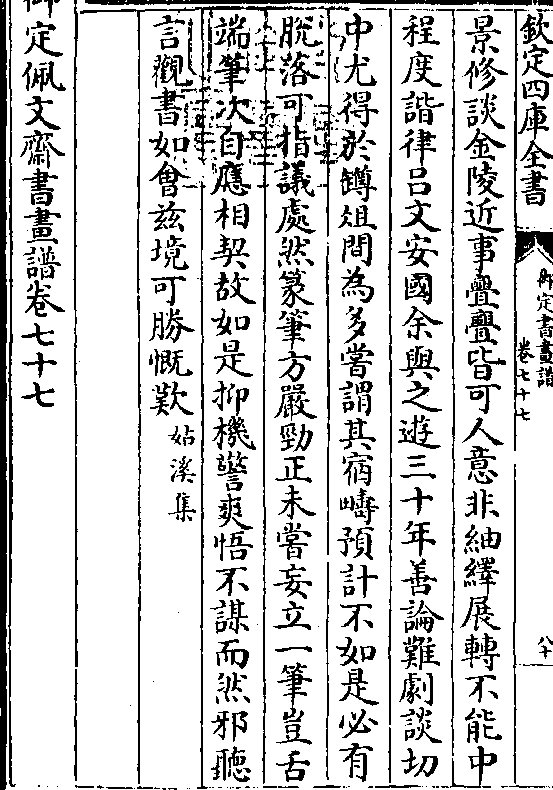 欽定四庫全書
御定書畫譜
卷七十七
八十
景修談金陵近事亹亹皆可人意非紬繹展轉不能中
程度諧律呂文安國余與之遊三十年善論難劇談切
中尤得於罇俎間為多嘗謂其宿疇預計不如是必有
脫落可指議處然篆筆方嚴勁正未嘗妄立一筆豈舌
端筆次自應相契故如是抑機警爽悟不謀而然邪聽
言觀書如會兹境可勝慨歎姑溪集
御定佩文齋書畫譜卷七十七